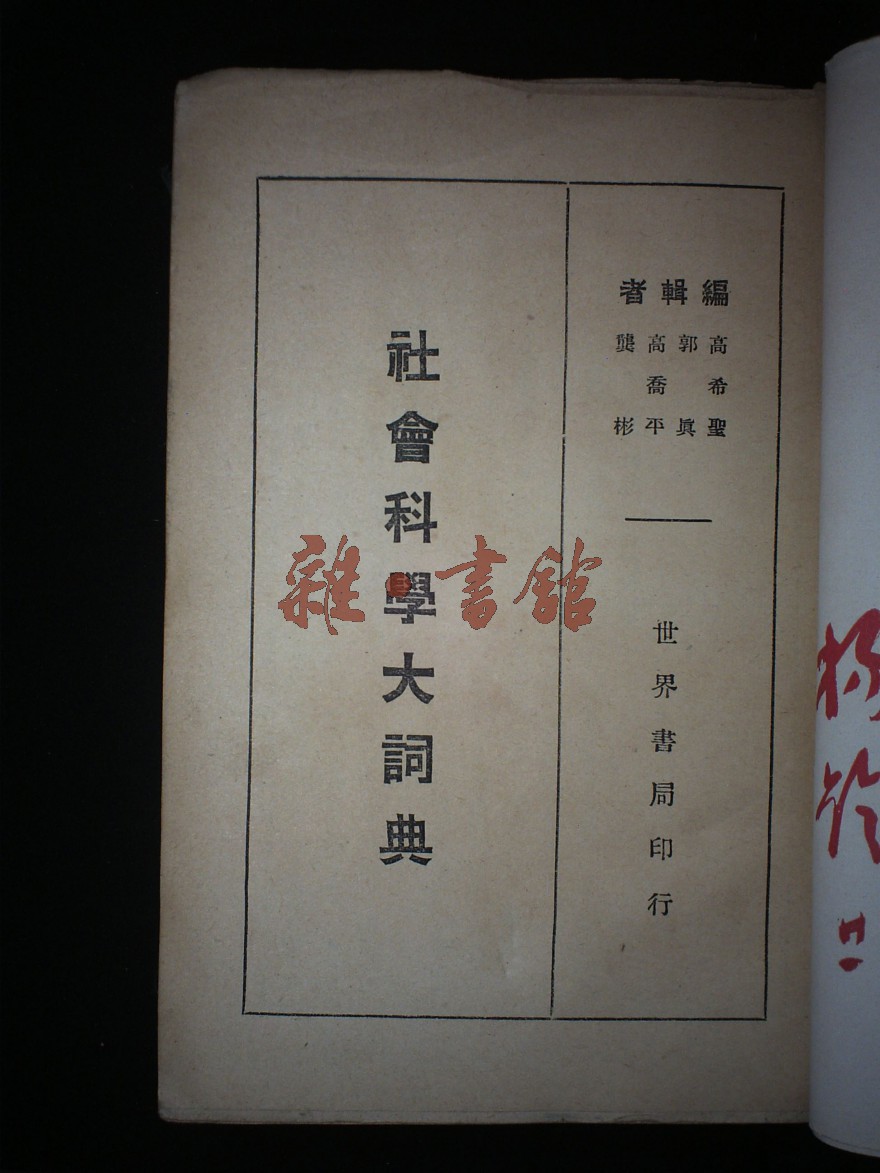 編輯者
高希聖
郭真
高喬平
龔彬
世界書局印行
社會科學大詞典
雜·書館